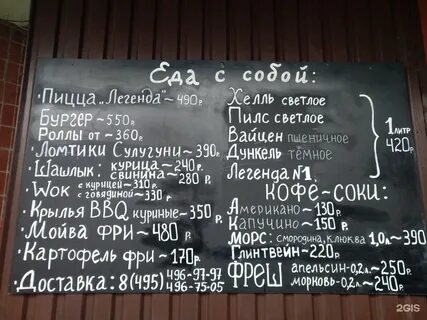 Еда с собой:
• Пицца „Легенда" ~ 490 р.
Бургер ~ 550 р.
Роллы от ~ 360 р.
• Ломтики Сулугуни ~ 390 р.
• Шашлык: курица ~ 240 р.
свинина ~ 280 р.
• Wok с курицей ~ 310 р.
с говядиной ~ 330 р.
• Крылья BBQ куриные ~ 350 р.
• Мойва фри ~ 480 р.
• Картофель фри ~ 170 р.
• Доставка: 8(495) 496-97-97
496-75-05
Хелль светлое
Пилс светлое
Вайцен пшеничное
Дункель тёмное
Легенда №1
1 литр
420 р.
Кофе-соки:
Американо ~ 130 р.
Капучино ~ 150 р.
Морс: смородина, клюква 1,0 л ~ 390
Глинтвейн ~ 220 р.
Фреш апельсин-0,2 л ~ 250 р.
морковь-0,2 л ~ 240 р.
2GIS